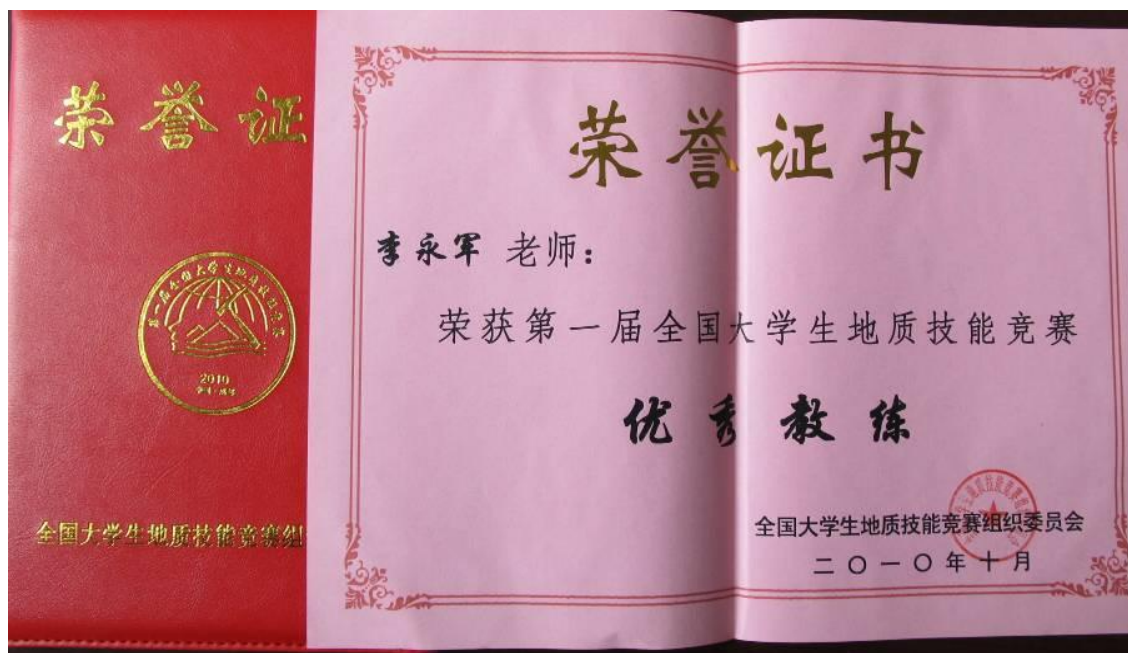 荣誉证
第一届全国大学生地质技能竞赛
2010
中国·成都
全国大学生地质技能竞赛组
荣誉证书
李永军 老师：
荣获第一届全国大学生地质技能竞赛
优秀教练
全国大学生地质技能竞赛组织委员会
二〇一〇年十月